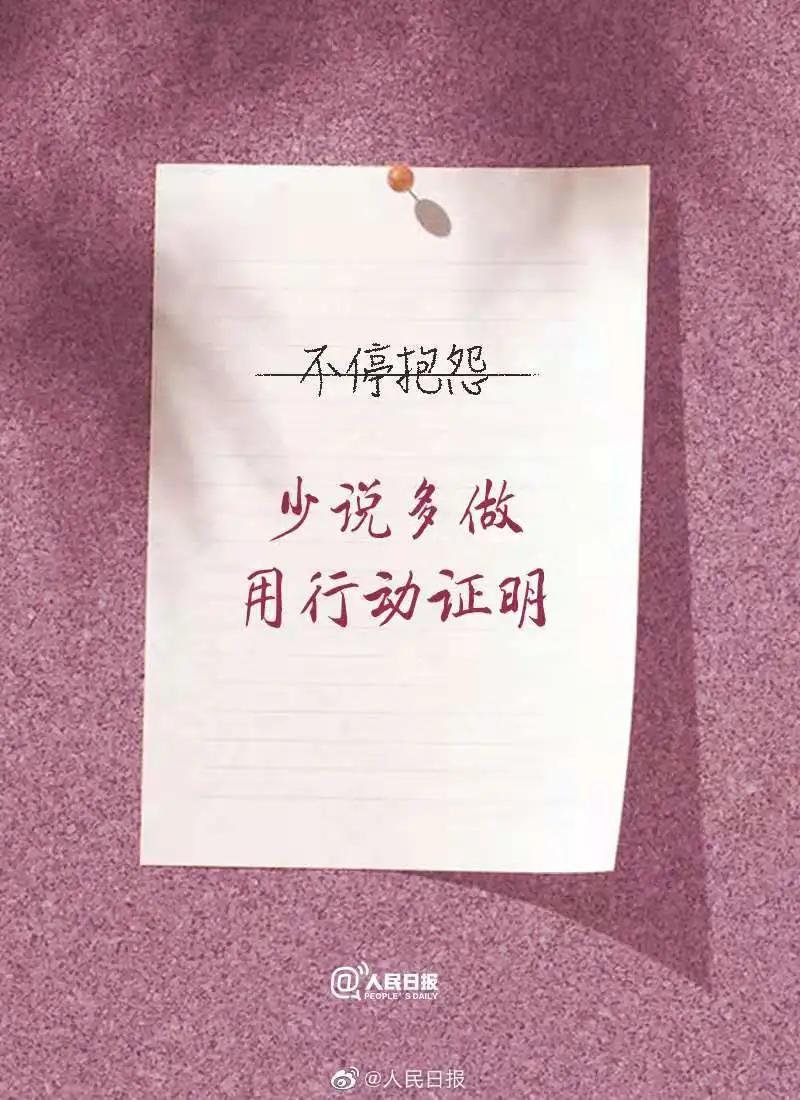 不停抱怨
少说多做
用行动证明
@人民日报
PEOPLE'S DAILY
@人民日报